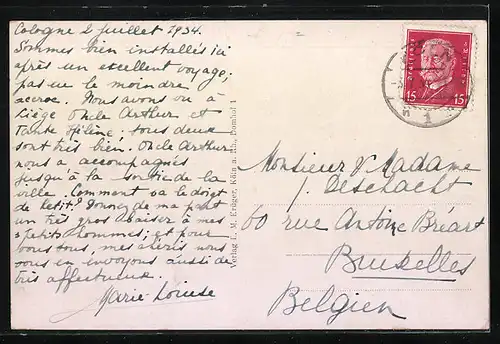 Cologne 2 juillet 1934.
Sommes bien installés ici
après un excellent voyage,
pas eu le moindre
accroc. Nous avons vu à
Liège Oncle Arthur et
Tante Hélène ; tous deux
sont très bien. Oncle Arthur
nous a accompagnés
jusqu'à la sortie de la
ville. Comment va le doigt
de Petit? Donnez de ma part
un très gros baiser à mes
petits hommes; et pour
vous tous, mes chéris nous
vous en envoyons aussi de
très affectueux.
Marie-Louise
Verlag L. M. Krüger, Köln a. Rh., Domhof 1
DEUTSCHES REICH
15 15
Monsieur & Madame
J. Deschacht
60 rue Antoine Bréart
Bruxelles
Belgien